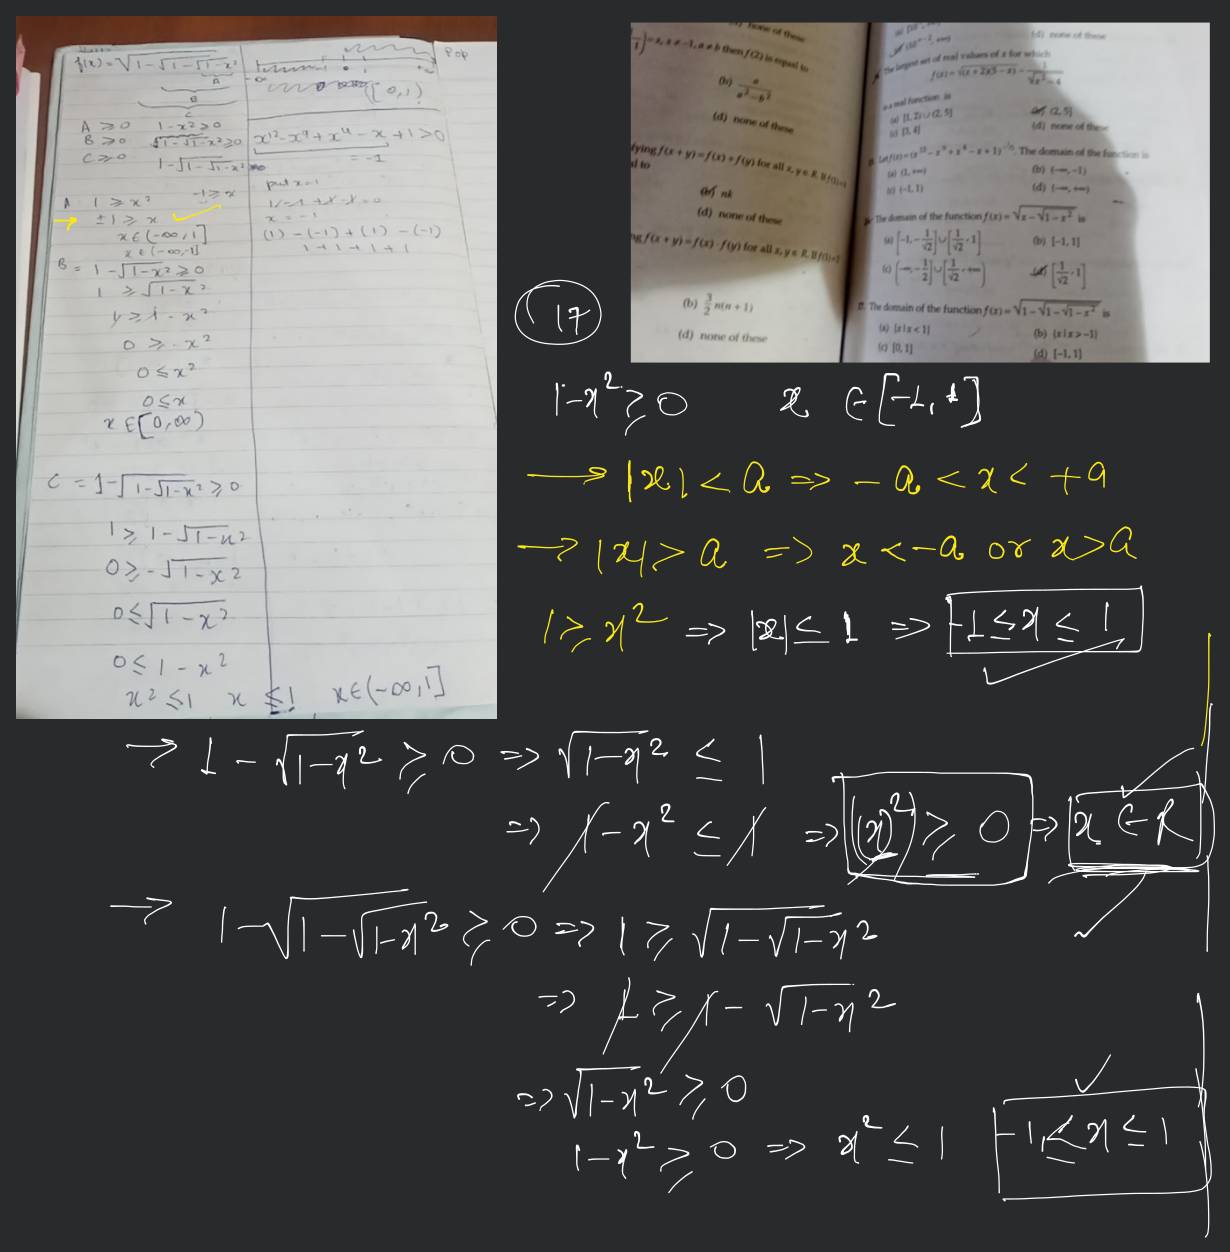 f(x) = √1-√1-√1-x²
A
B
C
A ≥ 0 1-x² ≥ 0
B ≥ 0 √1-√1-x² ≥ 0
C ≥ 0 1-√1-√1-x²
-1 ≥ x
A 1 ≥ x²
→ ±1 ≥ x ✓
x ∈ (-∞, 1]
x ∈ (-∞, -1]
B = 1-√1-x² ≥ 0
1 ≥ √1-x²
1 ≥ 1-x²
0 ≥ -x²
0 ≤ x²
0 ≤ x
x ∈ [0, ∞)
C = 1-√1-√1-x² ≥ 0
1 ≥ 1-√1-x²
0 ≥ -√1-x²
0 ≤ √1-x²
0 ≤ 1-x²
x² ≤ 1 x ≤ 1 x ∈ (-∞, 1]
[0, 1)
x¹² - x⁹ + x⁴ - x + 1 > 0
= -1
put x=1
x = -1
(1) - (-1) + (1) - (-1)
1 + 1 + 1 + 1
(d) none of these
= x, x ≠ -1, a ≠ b then f(2) is equal to
(b) a / a² - b²
(d) none of these
fying f(x + y) = f(x) + f(y) for all x, y ∈ R. If f(1)=1
al to
(b) nk
(d) none of these
ng f(x + y) = f(x) · f(y) for all x, y ∈ R. If f(1)=3
(b) 3/2 n(n + 1)
(d) none of these
(d) none of these
The largest set of real values of x for which
f(x) = √(x + 2)(5 - x) - 1/√x² - 4
is a real function is
(a) [1, 2) ∪ (2, 5] (b) (2, 5]
(c) [3, 4] (d) none of these
Let f(x) = (x¹² - x⁹ + x⁴ - x + 1)^-1/2. The domain of the function is
(a) (1, +∞) (b) (-∞, -1)
(c) (-1, 1) (d) (-∞, +∞)
The domain of the function f(x) = √x - √1 - x² is
(a) [-1, -1/√2] ∪ [1/√2, 1] (b) [-1, 1]
(c) (-∞, -1/2] ∪ [1/√2, +∞) (d) [1/√2, 1]
17. The domain of the function f(x) = √1 - √1 - √1 - x² is
(a) {x | x < 1} (b) {x | x > -1}
(c) [0, 1] (d) [-1, 1]
17
1-x² ≥ 0 x ∈ [-1, 1]
→ |x| < a ⇒ -a < x < +a
→ |x| > a ⇒ x < -a or x > a
1 ≥ x² ⇒ |x| ≤ 1 ⇒ -1 ≤ x ≤ 1
→ 1 - √1-x² ≥ 0 ⇒ √1-x² ≤ 1
⇒ 1-x² ≤ 1 ⇒ (x)² ≥ 0 ⇒ x ∈ R
→ 1-√1-√1-x² ≥ 0 ⇒ 1 ≥ √1-√1-x²
⇒ 1 ≥ 1 - √1-x²
⇒ √1-x² ≥ 0
1-x² ≥ 0 ⇒ x² ≤ 1 -1 ≤ x ≤ 1